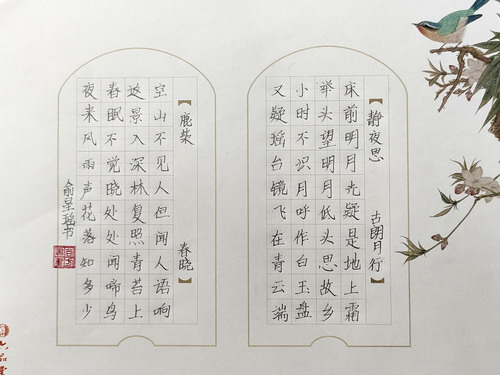 【静夜思 古朗月行】
床前明月光疑是地上霜
举头望明月低头思故乡
小时不识月呼作白玉盘
又疑瑶台镜飞在青云端
【鹿柴 春晓】
空山不见人但闻人语响
返景入深林复照青苔上
春眠不觉晓处处闻啼鸟
夜来风雨声花落知多少
俞星瑶书